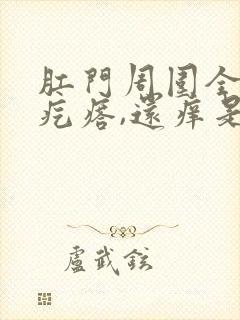 肛門周围全
疙瘩,還痒是
盧武鉉